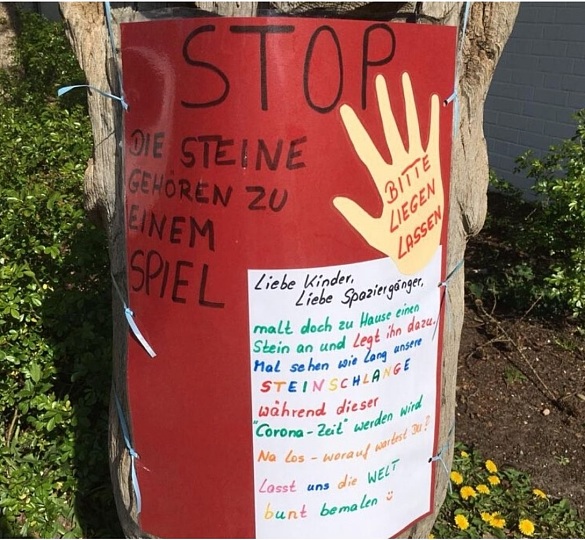 STOP
DIE STEINE
GEHÖREN ZU
EINEM
SPIEL
BITTE
LIEGEN
LASSEN
Liebe Kinder,
Liebe Spaziergänger,
malt doch zu Hause einen
Stein an und legt ihn dazu.
Mal sehen wie lang unsere
STEINSCHLANGE
während dieser
"Corona-Zeit" werden wird
Na los - worauf wartest Du?
Lasst uns die WELT
bunt bemalen ☺